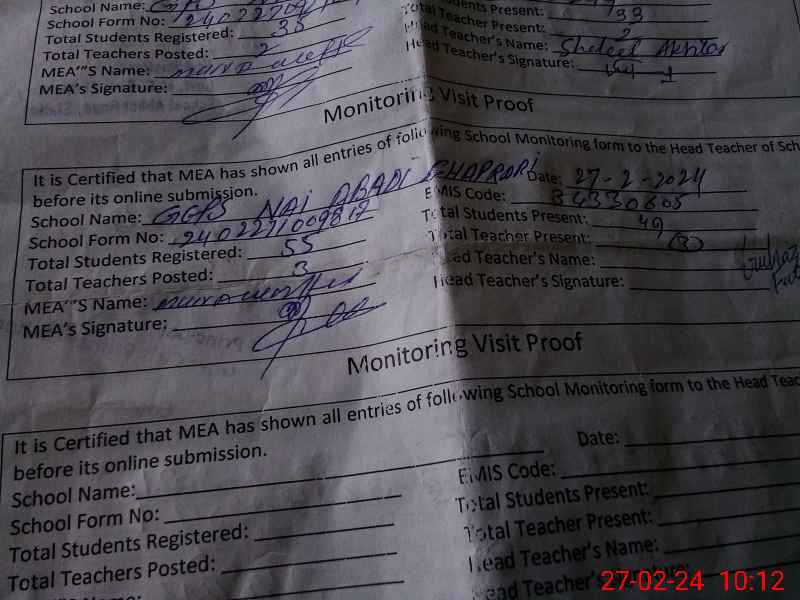 School Name:
School Form No:
Total Students Registered: 35
Total Teachers Posted: 2
MEA'"S Name:
MEA's Signature:
Students Present: 33
Total Teacher Present: 2
Head Teacher's Name:
Head Teacher's Signature:
Monitoring Visit Proof
It is Certified that MEA has shown all entries of following School Monitoring form to the Head Teacher of Sch
before its online submission. Date: 27-2-2024
School Name: GGPS NAI ABADI CHAPRARI
EMIS Code: 34330605
School Form No: 2402271009817
Total Students Present: 49
Total Students Registered: 55
Total Teacher Present: 3
Total Teachers Posted: 3
Head Teacher's Name:
MEA'"S Name:
Head Teacher's Signature:
MEA's Signature:
Monitoring Visit Proof
It is Certified that MEA has shown all entries of following School Monitoring form to the Head Teac
before its online submission. Date:
School Name:
EMIS Code:
School Form No:
Total Students Present:
Total Students Registered:
Total Teacher Present:
Total Teachers Posted:
Head Teacher's Name:
Head Teacher's Signature:
27-02-24 10:12